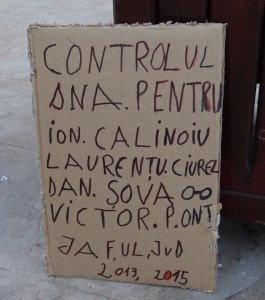 CONTROLUL
DNA. PENTRU
ION. CALINOIU
LAURENȚU. CIUREL
DAN. ȘOVA
VICTOR. P. ONT
JAF, UL, JUD
2,013, 2015